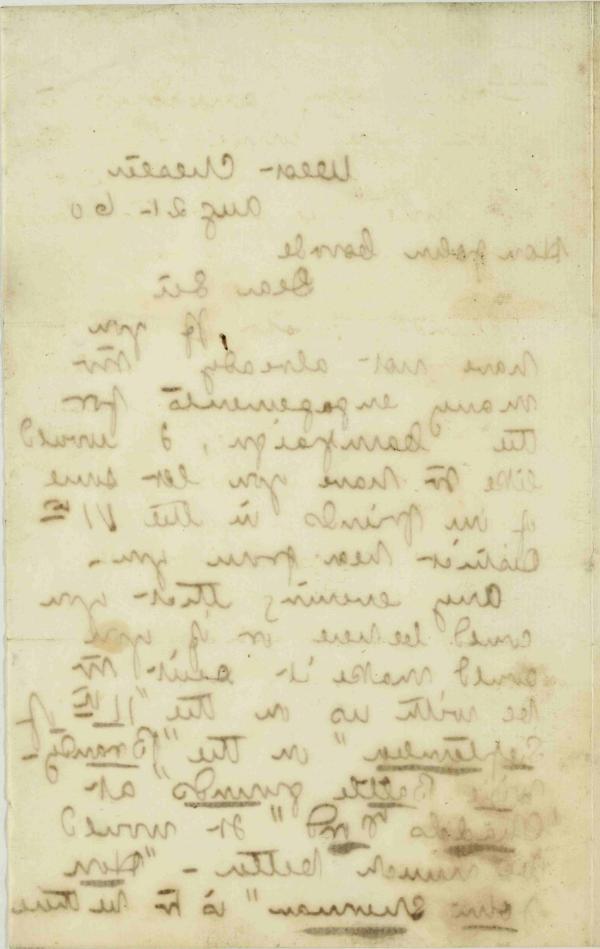 West-Chester
Aug 21-60
Hon John Covode
Dear Sir
If you
have not already too
many engagements for
the Campaign, I would
like to have you let some
of our friends in the VIth
District hear from you -
Any evening that you
could be here or if you
could make it suit to
be with us on the "11th of
September" on the "Brandy-
wine Battle grounds" at
"Chadds Fd" it would
be much better - "Hon
John Sherman" is to be there